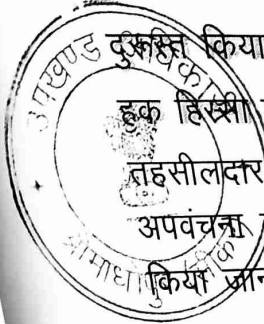 दुरूस्त किया
हक हिस्सी
तहसीलदार
अपवंचना
किया जान
उपखण्ड